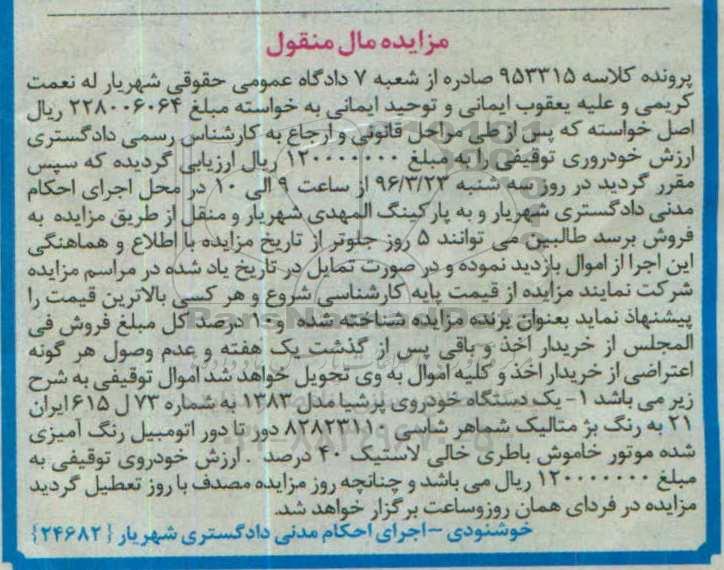 مزایده مال منقول
پرونده کلاسه ۹۵۳۳۱۵ صادره از شعبه ۷ دادگاه عمومی حقوقی شهریار له نعمت
کریمی و علیه یعقوب ایمانی و توحید ایمانی به خواسته مبلغ ۲۲۸۰۰۶۰۶۴ ریال
اصل خواسته که پس از طی مراحل قانونی و ارجاع به کارشناس رسمی دادگستری
ارزش خودروری توقیفی را به مبلغ ۱۲۰۰۰۰۰۰۰ ریال ارزیابی گردیده که سپس
مقرر گردید در روز سه شنبه ۹۶/۳/۲۳ از ساعت ۹ الی ۱۰ در محل اجرای احکام
مدنی دادگستری شهریار و به پارکینگ المهدی شهریار و منقل از طریق مزایده به
فروش برسد طالبین می توانند ۵ روز جلوتر از تاریخ مزایده با اطلاع و هماهنگی
این اجرا از اموال بازدید نموده و در صورت تمایل در تاریخ یاد شده در مراسم مزایده
شرکت نمایند مزایده از قیمت پایه کارشناسی شروع و هر کسی بالاترین قیمت را
پیشنهاذ نماید بعنوان برنده مزایده شناخته شده و ۱۰ درصد کل مبلغ فروش فی
المجلس از خریدار اخذ و باقی پس از گذشت یک هفته و عدم وصول هر گونه
اعتراضی از خریدار اخذ و کلیه اموال به وی تحویل خواهد شد اموال توقیفی به شرح
زیر می باشد ۱- یک دستگاه خودروی پرشیا مدل ۱۳۸۳ به شماره ۷۳ ل ۶۱۵ ایران
۲۱ به رنگ بژ متالیک شماهر شاسی ۸۲۸۲۳۱۱۰ دور تا دور اتومبیل رنگ آمیزی
شده موتور خاموش باطری خالی لاستیک ۴۰ درصد . ارزش خودروی توقیفی به
مبلغ ۱۲۰۰۰۰۰۰۰ ریال می باشد و چنانچه روز مزایده مصدف با روز تعطیل گردید
مزایده در فردای همان روزوساعت برگزار خواهد شد.
خوشنودی -اجرای احکام مدنی دادگستری شهریار {۲۴۶۸۲}
ParsNamadData